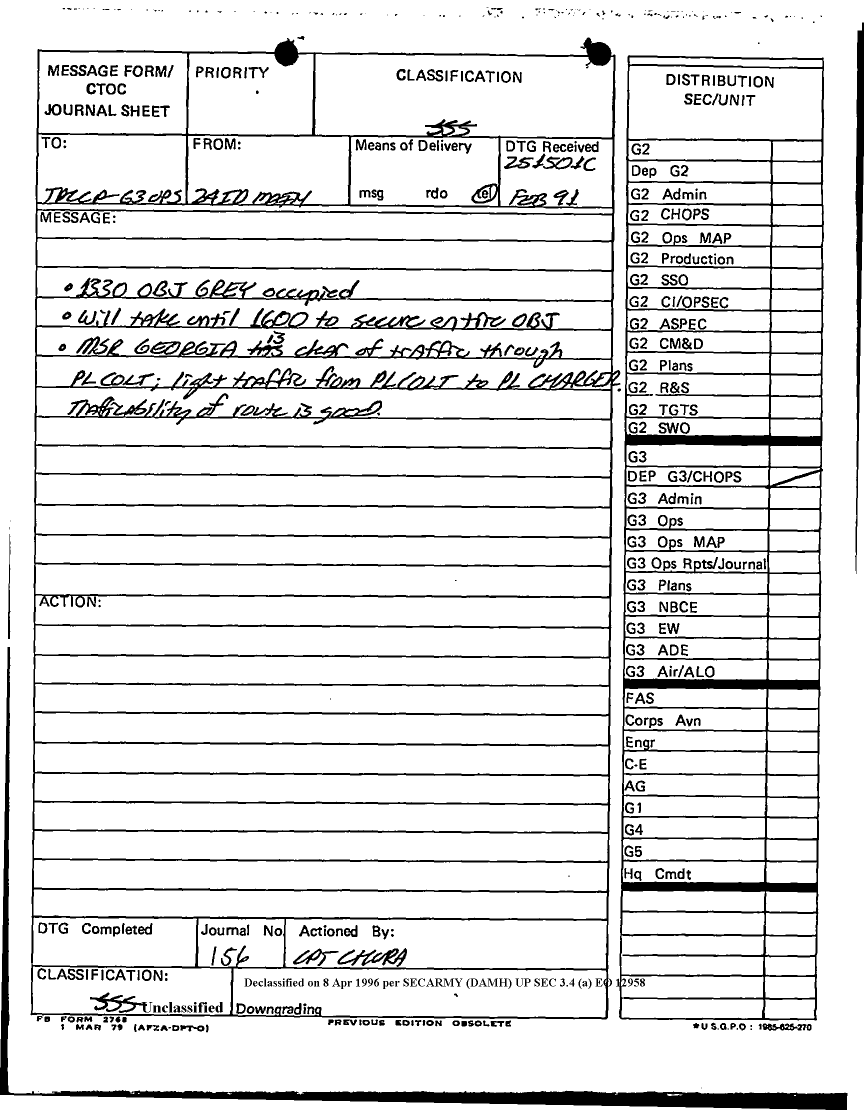 MESSAGE FORM/
CTOC
JOURNAL SHEET
PRIORITY
CLASSIFICATION
SSS
TO:
TACCP-G3 OPS
FROM:
24ID MAIN
Means of Delivery
msg rdo tel
DTG Received
251501C
FEB 91
MESSAGE:
• 1330 OBJ GREY occupied
• Will take until 1600 to secure entire OBJ
• MSR GEORGIA is clear of traffic through
PL COLT; light traffic from PL COLT to PL CHARGER.
Trafficability of route is good.
ACTION:
DTG Completed
Journal No
156
Actioned By:
CPT CHURA
CLASSIFICATION:
SSS Unclassified
Declassified on 8 Apr 1996 per SECARMY (DAMH) UP SEC 3.4 (a) EO 12958
Downgrading
FB FORM 2768
1 MAR 79 (AFZA-DPT-O)
PREVIOUS EDITION OBSOLETE
DISTRIBUTION
SEC/UNIT
G2
Dep G2
G2 Admin
G2 CHOPS
G2 Ops MAP
G2 Production
G2 SSO
G2 CI/OPSEC
G2 ASPEC
G2 CM&D
G2 Plans
G2 R&S
G2 TGTS
G2 SWO
G3
DEP G3/CHOPS
G3 Admin
G3 Ops
G3 Ops MAP
G3 Ops Rpts/Journal
G3 Plans
G3 NBCE
G3 EW
G3 ADE
G3 Air/ALO
FAS
Corps Avn
Engr
C-E
AG
G1
G4
G5
Hq Cmdt
*U.S.G.P.O : 1985-625-270